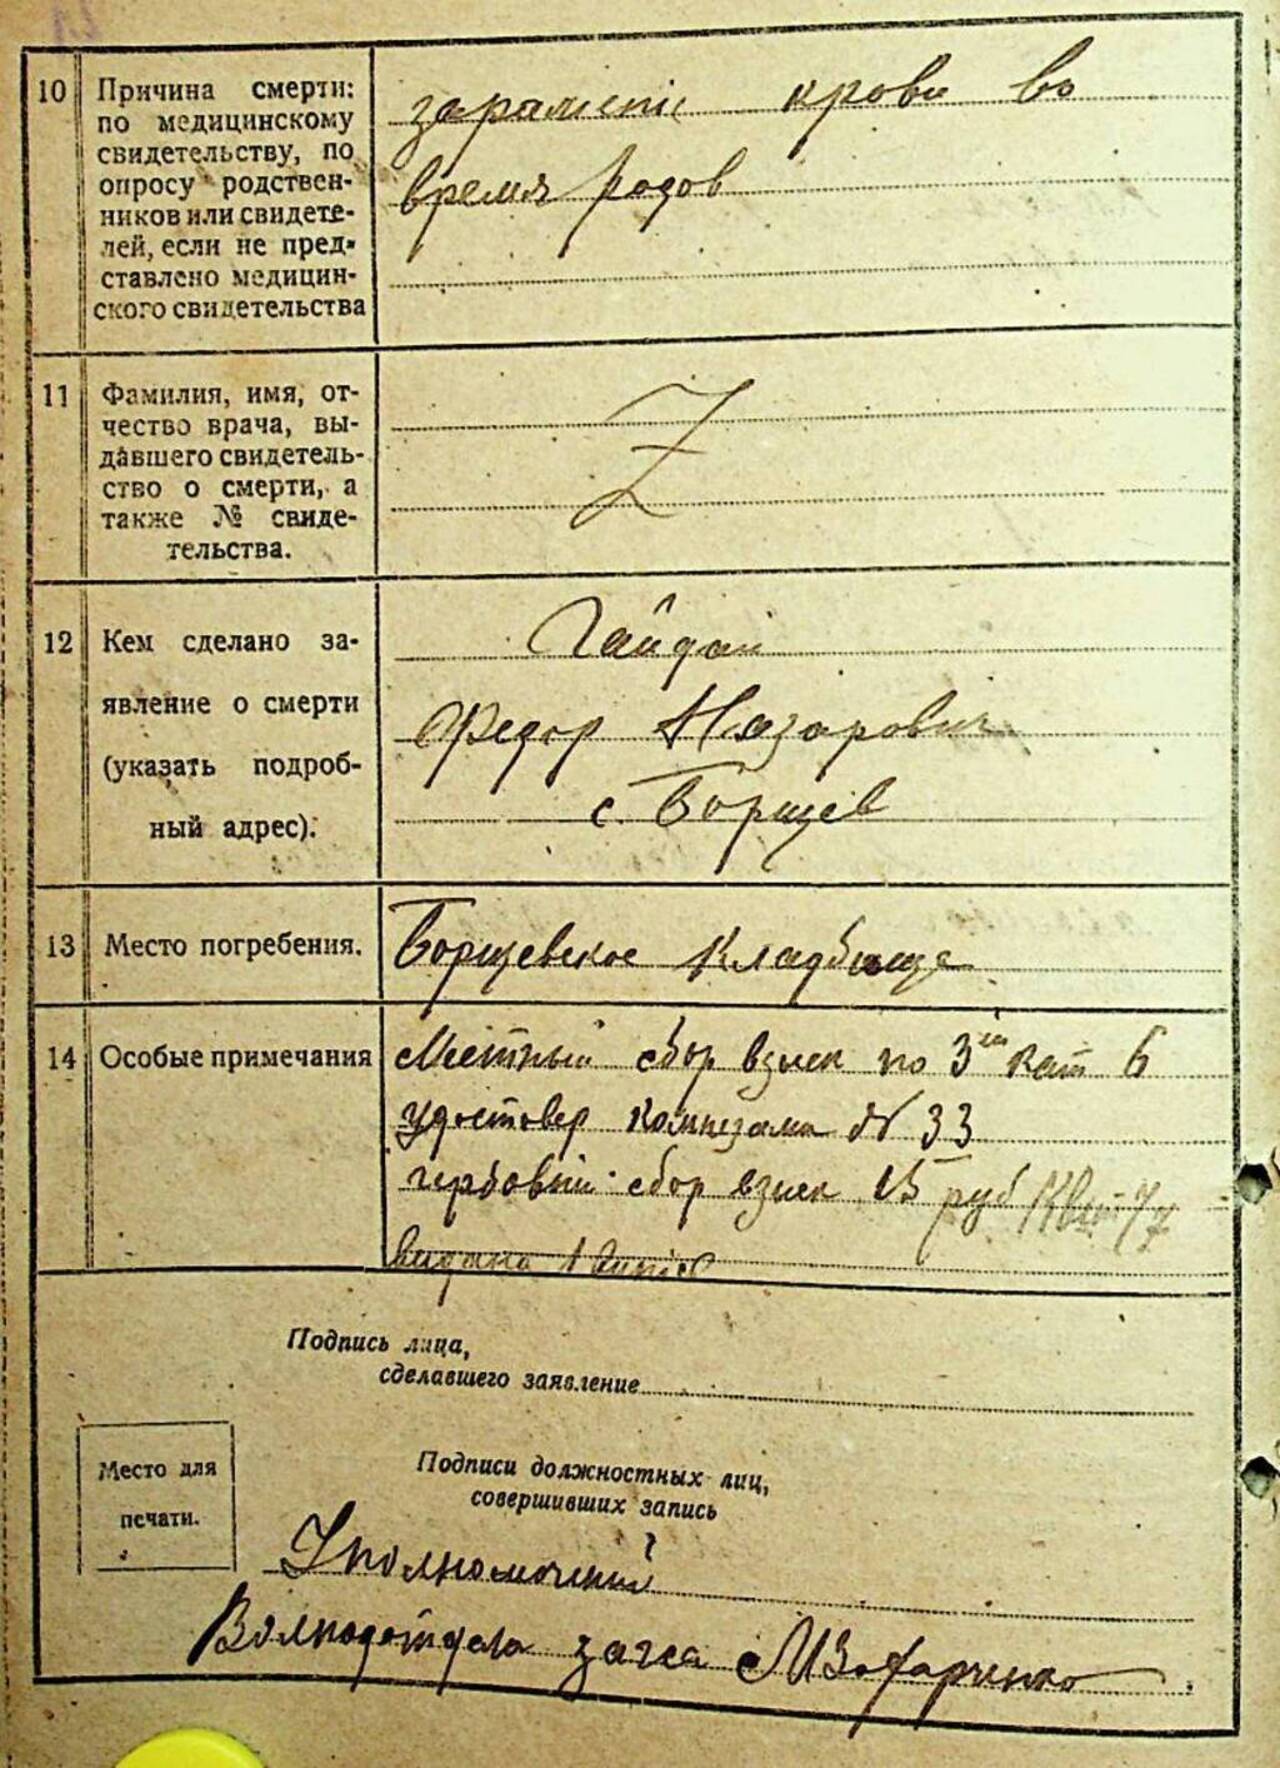 10
Причина смерти:
по медицинскому
свидетельству, по
опросу родствен-
ников или свидете-
лей, если не пред-
ставлено медицин-
ского свидетельства
крови во
время родов
11
Фамилия, имя, от-
чество врача, вы-
давшего свидетель-
ство о смерти, а
также № свиде-
тельства.
Z
12
Кем сделано за-
явление о смерти
(указать подроб-
ный адрес).
Гайдай
Федор Назарович
с. Борщев
13
Место погребения.
Борщевское Кладбище
14
Особые примечания
Местный сбор взыск по 3 кат б
удостовер № 33
гербовый сбор взыск руб
Подпись лица,
сделавшего заявление
Место для
печати.
Подписи должностных лиц,
совершивших запись
Уполномочений
Волподотдела загса